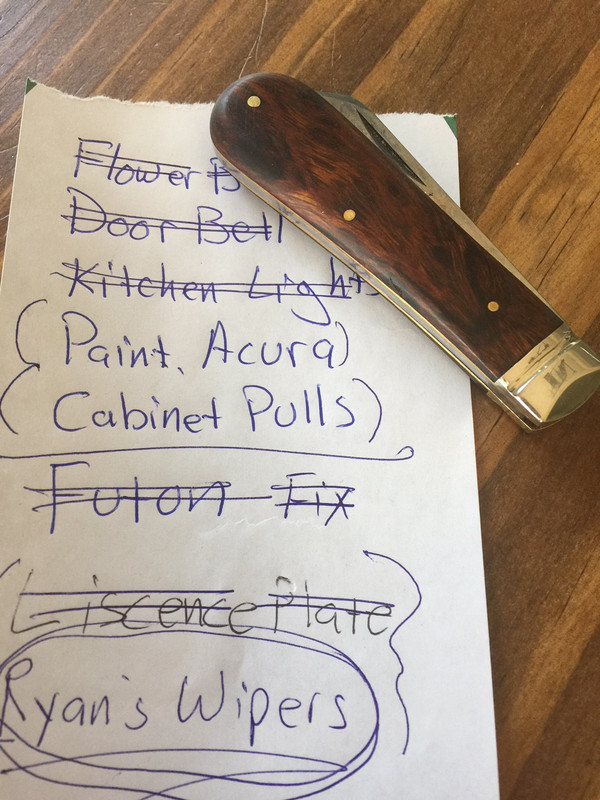 Flower B
Door Bell
Kitchen Lights
(Paint, Acura)
(Cabinet Pulls)
Futon Fix
Liscence Plate
Ryan's Wipers